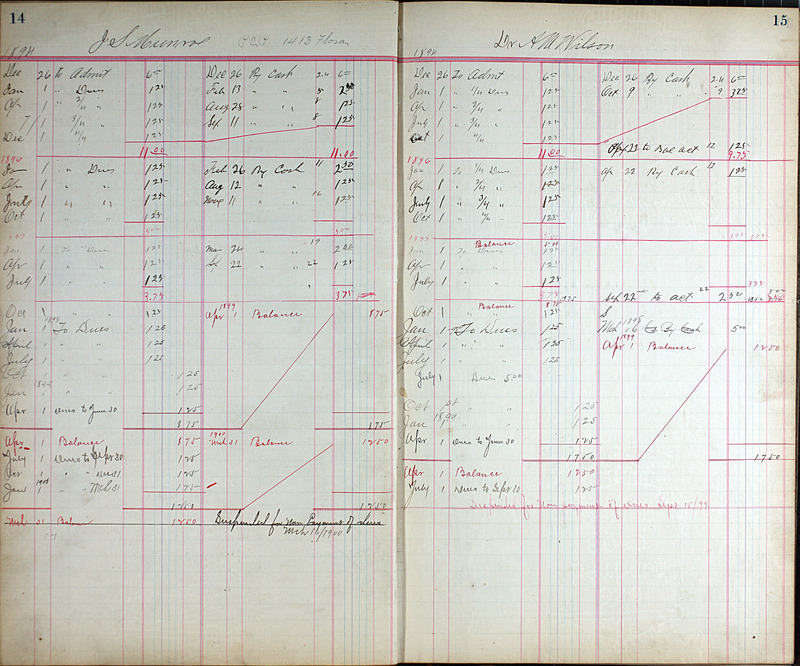 14
J S Munroe 1413 Flora
1894
Dec 26 to Admit 6 00 Dec 26 By Cash 24 6 00
Jan 1 " Dues 1 25 Feb 13 " " 5 2 50
Apr 1 " 2/4 " 1 25 Aug 28 " " 8 1 25
7/1 3/4 " 1 25 Sep 11 " " 8 1 25
Dec 1 4/4 1 25
11.00 11.00
1896
Jan 1 " Dues 1 25 Feb 26 By Cash 11 2 50
Apr 1 " " 1 25 Aug 12 " " 1 25
July 1 " " 1 25 Nov 11 " " 1 25
Oct 1 " 1 25
5.00 5.00
1897
Jan 1 To Dues 1 25 Mar 24 " " 19 2 50
Apr 1 " 1 25 Sep 22 " " 22 1 25
July 1 " 1 25
3.75 3 75
Oct 1 " " 1 25 Apr 1899 1 Balance 8 75
Jan 1898 1 To Dues 1 25
April 1 " " 1 25
July 1 " " 1 25
Oct 1 " " 1 25
Jan 1899 1 " " 1 25
Apr 1 Dues to June 30 1 25
8 75 8 75
Apr 1 Balance 8 75 1900 Mch 31 Balance 12 50
July 1 Dues to Sepr 30 1 25
Oct 1 " " Dec 31 1 25
Jan 1900 1 " " Mch 31 1 25
12 50 12 50
Mch 31 Bal 12 50 Suspended for Non Payment of dues
Mch 16/1900
15
Dr A W Wilson
1894
Dec 26 To Admit 6 00 Dec 26 By Cash 24 6 00
Jan 1 " 1/4 Dues 1 25 Oct 9 " " 9 3 75
Apr 1 " 2/4 " 1 25
July 1 " 3/4 " 1 25
Oct 1 4/4 1 25
Apr 22 to Bal act 12 1 25
11.00 9.75
1896
Jan 1 To 1/4 Dues 1 25 Apr 22 By Cash 12 1 25
Apr 1 " 2/4 " 1 25
July 1 " 3/4 " 1 25
Oct 1 " 4/4 " 1 25
5.00
1897 Balance 5.00
Jan 1 To Dues 1 25
Apr 1 " " 1 25
July 1 " " 1 25
Sep 22 to act 22 2 50
Balance
Oct 1 " " 1 25
Jan 1 To Dues 1 25 Mch 1898 16 By Cash 5 00
April 1 " " 1 25 Apr 1899 1 Balance 12 50
July 1 " " 1 25
July 1 Due 5.00
Oct 1 " " 1 25
Jan 1899 1 " " 1 25
Apr 1 Dues to June 30 1 25
17 50 17 50
Apr 1 Balance 12 50
July 1 Dues to Sepr 30 1 25
Suspended for Non payment of dues Sept 15/99